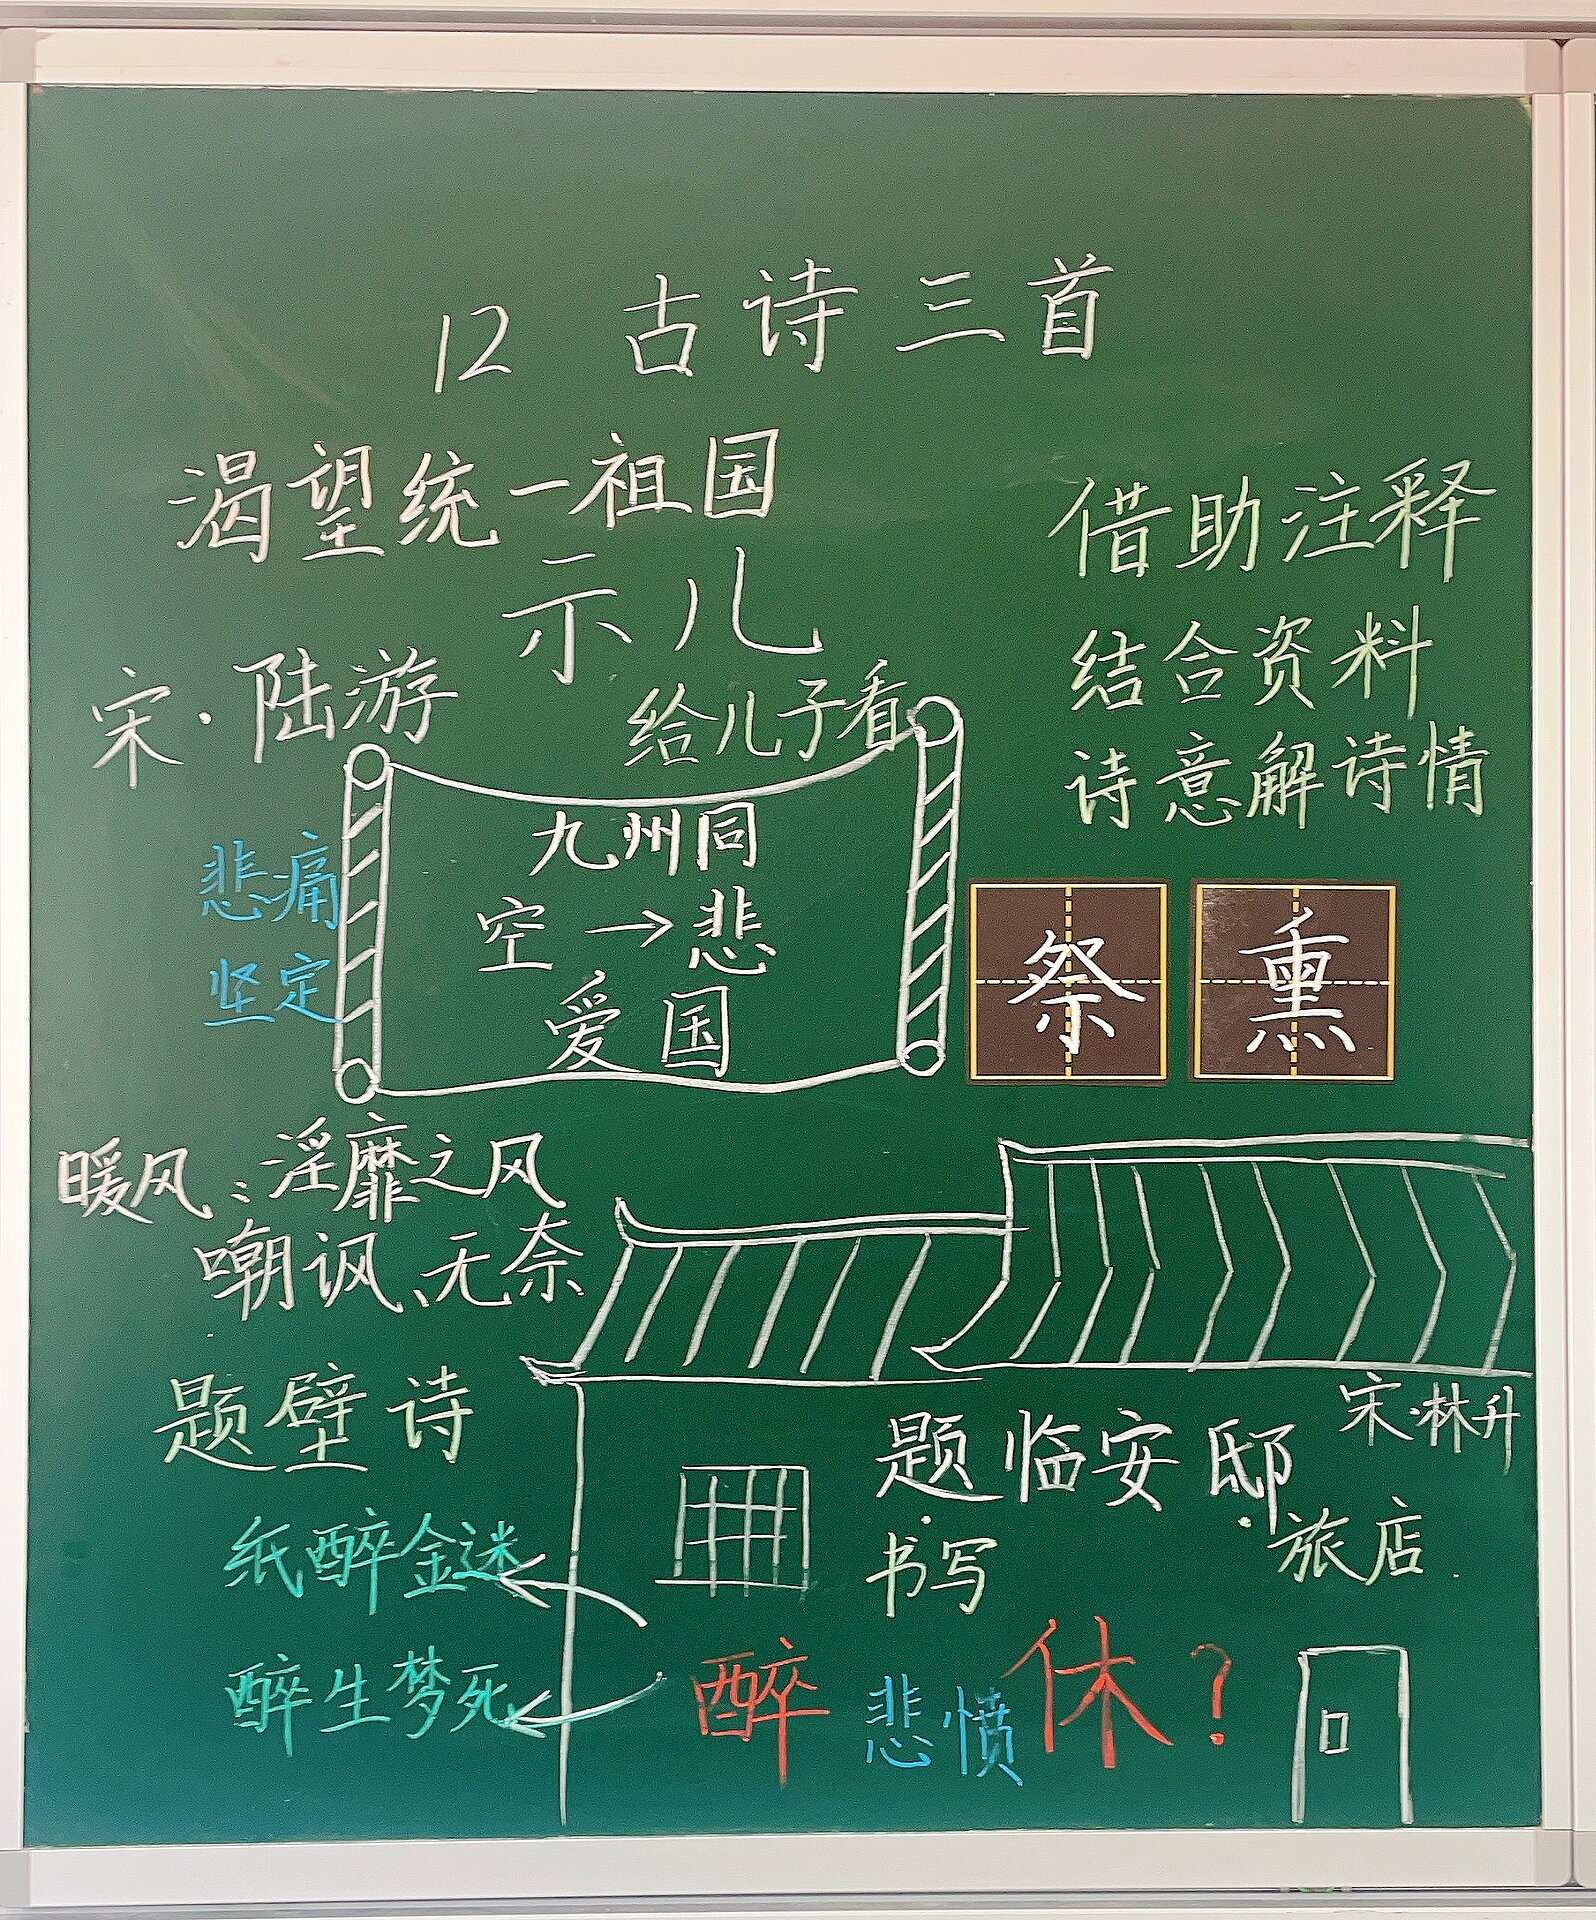 12 古诗三首
渴望统一祖国
示儿
宋·陆游
给儿子看
借助注释
结合资料
诗意解诗情
悲痛
坚定
九州同
空→悲
爱国
祭 熏
暖风:淫靡之风
嘲讽、无奈
题壁诗
题临安邸
宋·林升
书写
旅店
纸醉金迷
醉生梦死
醉 悲愤 休?